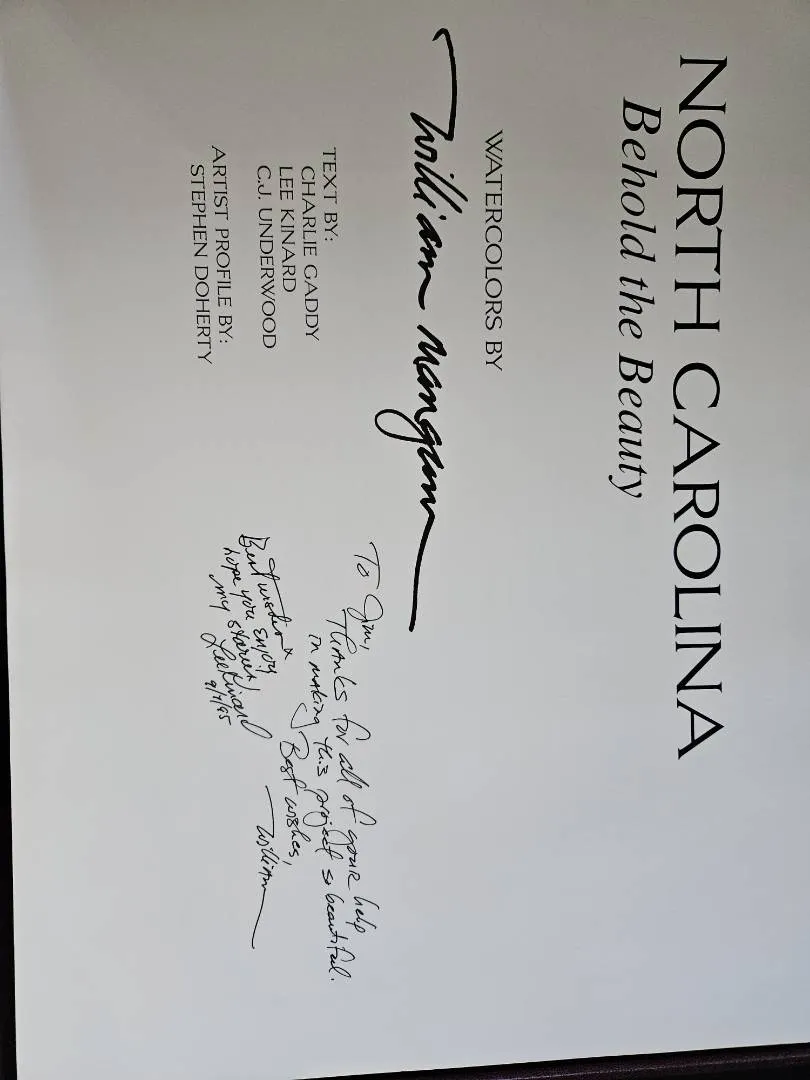 NORTH CAROLINA
Behold the Beauty
WATERCOLORS BY
William Mangum
TEXT BY:
CHARLIE GADDY
LEE KINARD
C.J. UNDERWOOD
ARTIST PROFILE BY:
STEPHEN DOHERTY
To Jim,
Thanks for all of your help
in making this project so beautiful.
Best wishes,
William
Best wishes &
hope you enjoy
my stories!
Lee Kinard
9/7/95